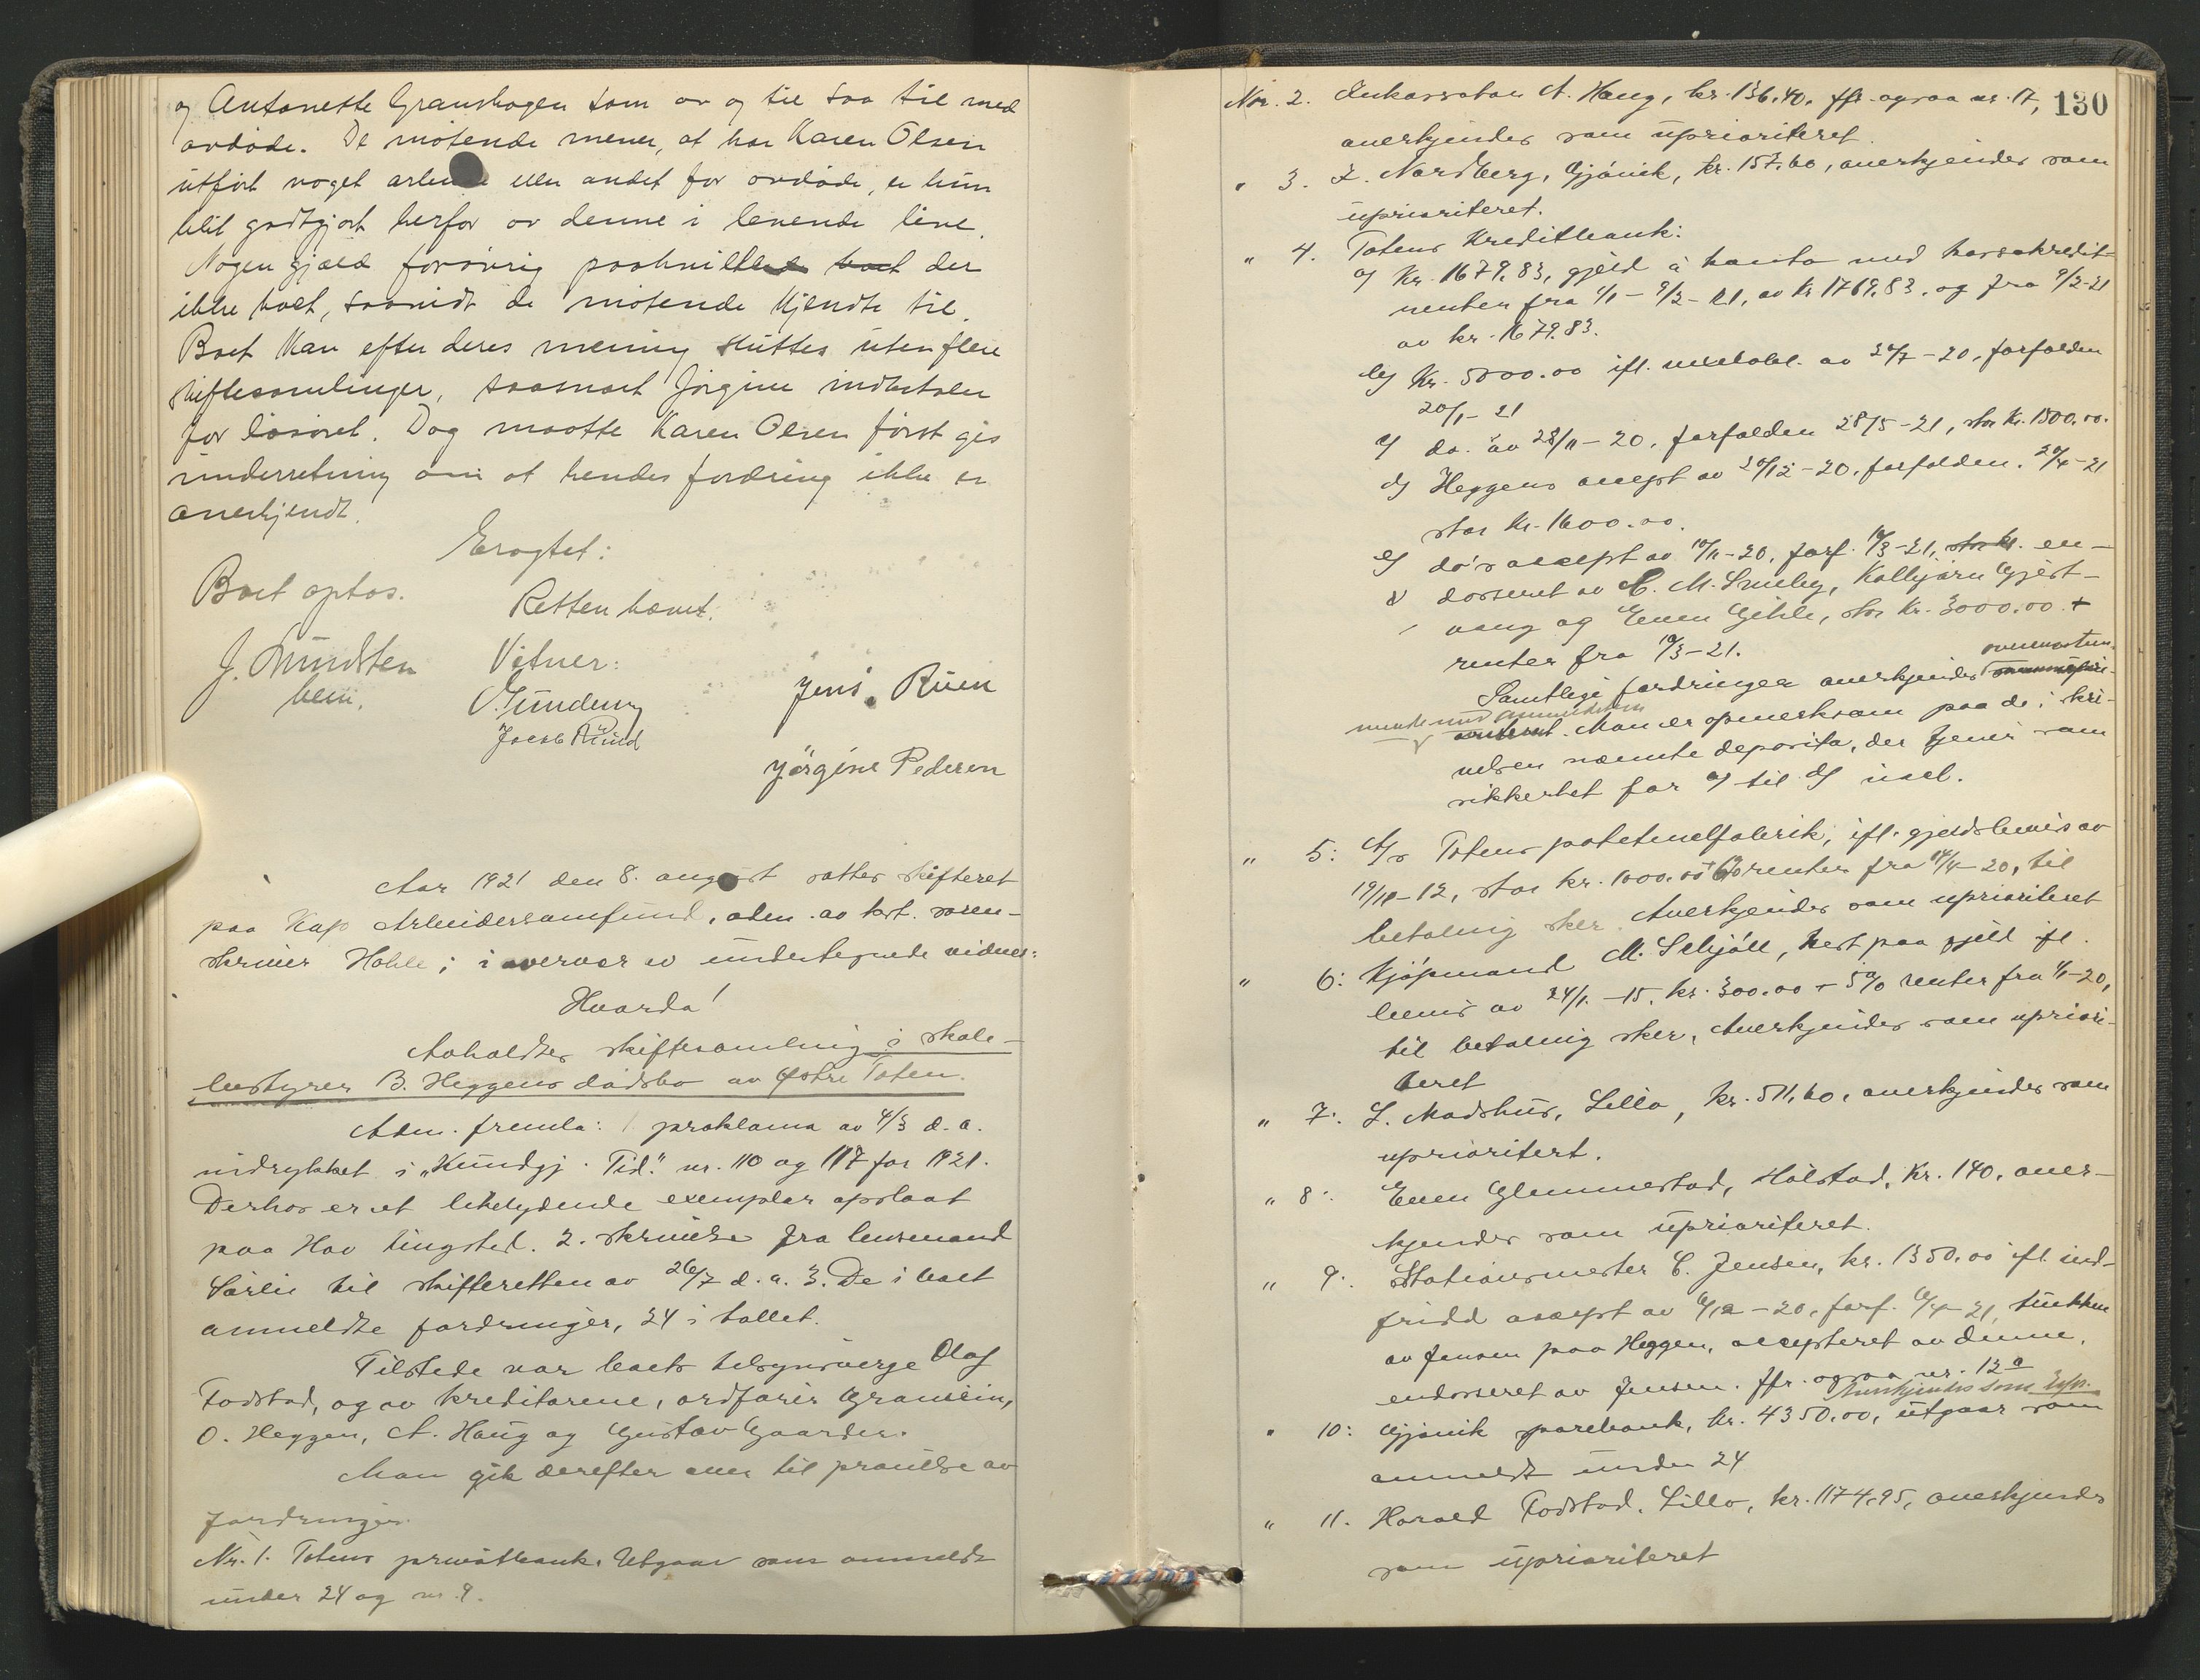 og Antonette Granshagen som av og til saa til med
avdøde. De møtende mener, at har Karen Olsen
utført noget arbeide eller andet for avdøde, er hun
blit godtgjort herfor av denne i levende live.
Nogen gjæld forøvrig paahviler der
ikke boet, saavidt de møtende kjendte til.
Boet kan efter deres mening sluttes uten flere
skiftesamlinger, saasnart Jørgine indbetaler
for løsøret. Dog maatte Karen Olsen først gis
underretning om at hendes fordring ikke er
anerkjendt.
Eragtet:
Boet optas.
Retten hævet.
J. Sundsten
Vitner:
Jens Ruen
Jacob Rund
Jørgine Pedersen
Aar 1921 den 8. august sattes skifteret
paa Kap Arbeidersamfund, adm. av kst. soren-
skriver Hohle; i overvær av undertegnede vidner:
Hvorda!
Avholdtes skiftesamling i skole-
bestyrer B. Heggens dødsbo av Østre Toten.
Adm. fremla: 1 proklama av 4/3 d. a.
indrykket i "Kundgj. Tid." nr. 110 og 117 for 1921.
Derhos er et likelydende exemplar opslaat
paa Hov tingsted. 2. skrivelse fra lensmand
Sørlie til skifteretten av 26/7 d. a. 3. De i boet
anmeldte fordringer, 24 i tallet.
Tilstede var boets tilsynsverge Olaf
Fodstad, og av kreditorene, ordfører Granlien,
O. Heggen, A. Haug og Gustav Gaarder.
Man gik derefter over til prøvelse av
fordringer.
Nr. 1. Totens privatbank. Utgaar som anmeldt
under 24 og nr. 9.
130
Nr. 2. Inkassator A. Haug, kr. 136.40. jfr. ogsaa nr. 17,
anerkjendes som uprioriteret.
" 3. L. Nordberg, Gjøvik, kr. 157.60, anerkjendes som
uprioriteret.
" 4. Totens Kreditbank:
a) Kr. 1679.83, gjeld à konto med kassakredit-
renter fra 1/1 - 9/2 - 21, av kr 1769.83. og fra 9/2-21
av kr. 1679.83.
b) Kr. 5000.00 ifl. vexelobl. av 20/7 - 20, forfalden
20/1 - 21
c) do. av 28/11 - 20, forfalden 28/5 - 21, stor kr. 1500.00.
d) Heggens accept av 20/12 - 20, forfalden 20/4 - 21
stor kr. 1600.00.
e) do's accept av 10/11 - 20, forf. 10/3 - 21, stor kr. en-
dosseret av C. M. Smeby, Kolbjørn Gjest-
vang og Even Gihle, stor kr. 3000.00 +
renter fra 10/3 - 21.
Samtlige fordringer anerkjendes overensstem-
mende med anmeldelsen. Man er opmerksom paa de i skri-
velsen nævnte deposita, der tjener som
sikkerhet for a) til d) incl.
" 5: A/s Totens potetmelfabrik, ifl. gjeldsbevis av
19/10 - 12, stor kr. 1000.00 + 6% renter fra 14/4 - 20, til
betaling sker. Anerkjendes som uprioriteret
" 6: Kjøpmand M. Schjøll, rest paa gjeld ifl.
bevis av 24/1. - 15. kr. 300.00 + 5% renter fra 1/1 - 20,
til betaling sker, Anerkjendes som upriori-
teret
" 7: L. Madshus, Lillo, kr. 511.60, anerkjendes som
uprioritert.
" 8: Even Glemmestad, Hølstad, Kr. 140. aner-
kjendes som uprioriteret.
" 9: Stationsmester C. Jensen, kr. 1350.00 ifl. ind-
fridd accept av 6/12 - 20, forf. 6/4 - 21, trukken
av Jensen paa Heggen, accepteret av denne,
endosseret av Jensen. jfr. ogsaa nr. 12 a
Anerkjendes som Upr.
" 10: Gjøvik sparebank, kr. 4350.00, utgaar som
anmeldt under 24
" 11. Harald Fodstad, Lillo, kr. 1174.95, anerkjendes
som uprioriteret